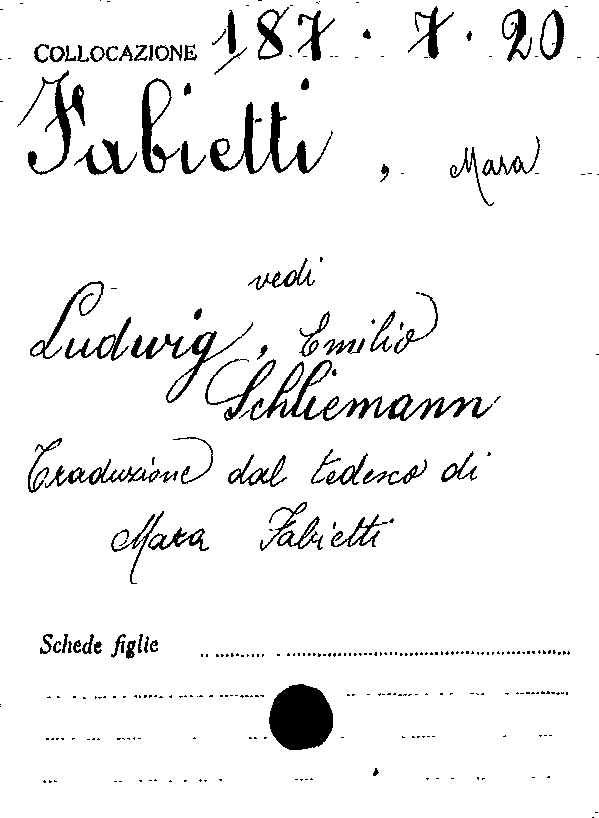 COLLOCAZIONE 187 . 7 . 20
Fabietti , Mara
vedi
Ludwig , Emilio
Schliemann
Traduzione dal tedesco di
Mara Fabietti
Schede figlie